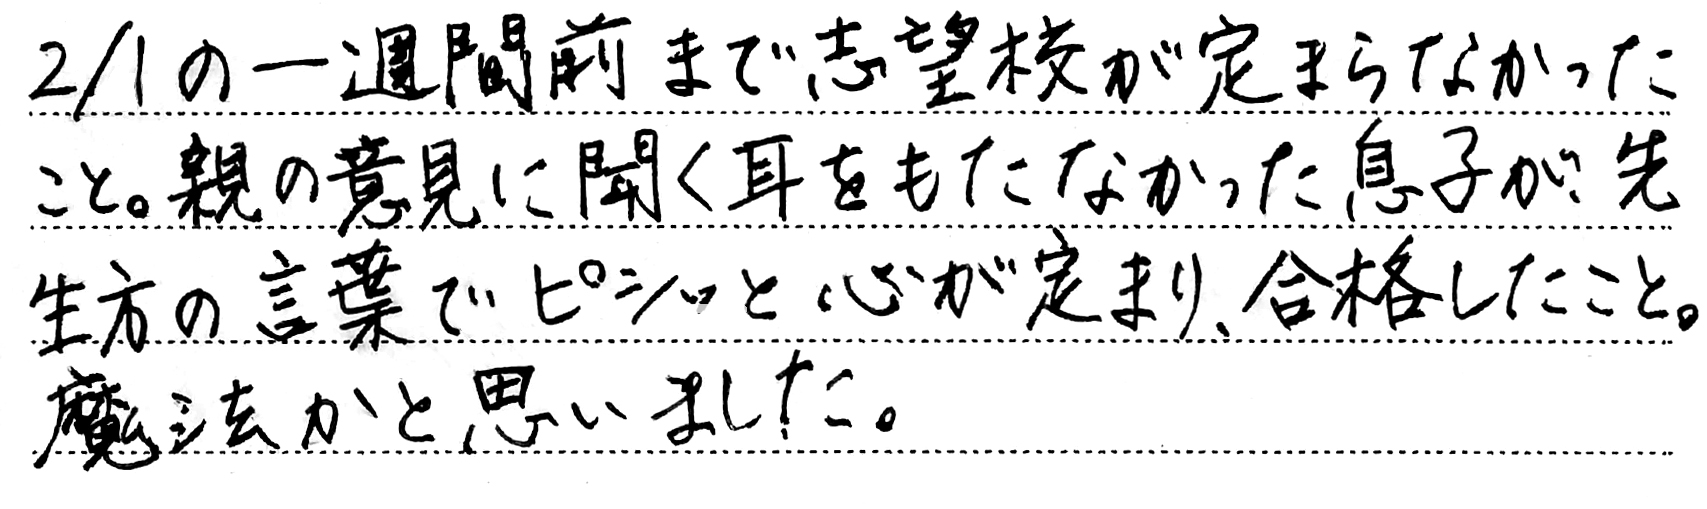 2/1の一週間前まで志望校が定まらなかった
こと。親の意見に聞く耳をもたなかった息子が、先
生方の言葉でピシッと心が定まり、合格したこと。
魔法かと思いました。